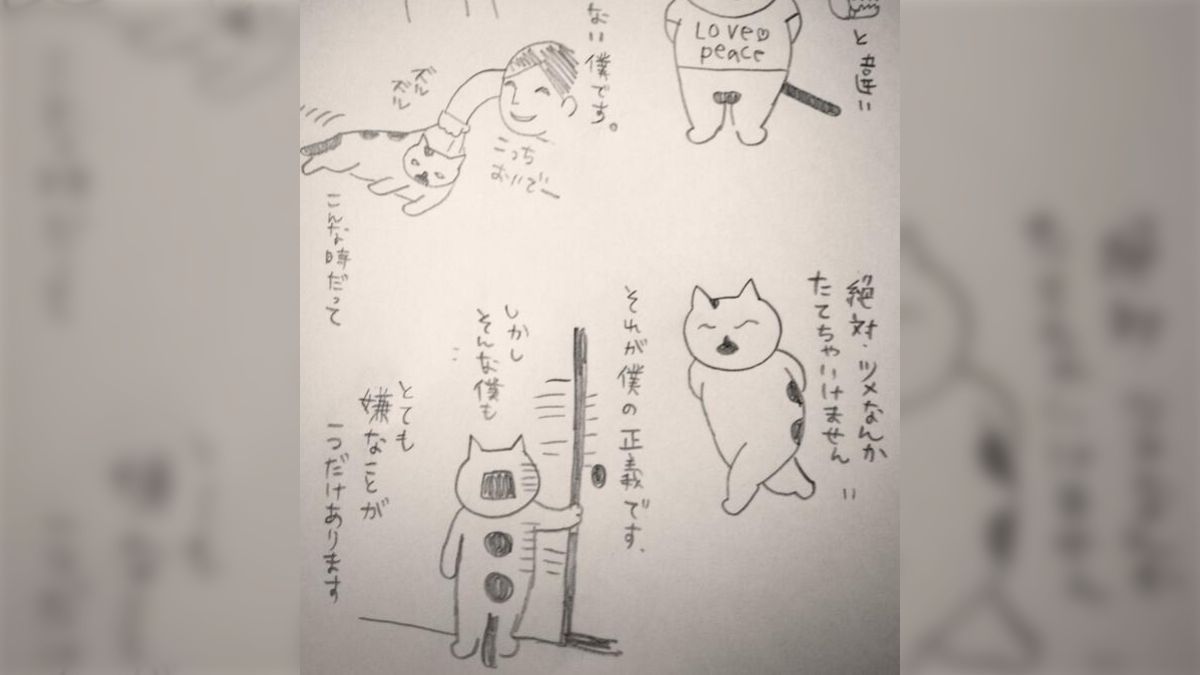 と違い
LOVE
peace
ない僕です。
ズル
ズル
こっち
おいでー
こんな時だって
絶対・ツメなんか
たてちゃいけません
それが僕の正義です、
しかし
そんな僕も
とても
嫌なことが
一つだけあります